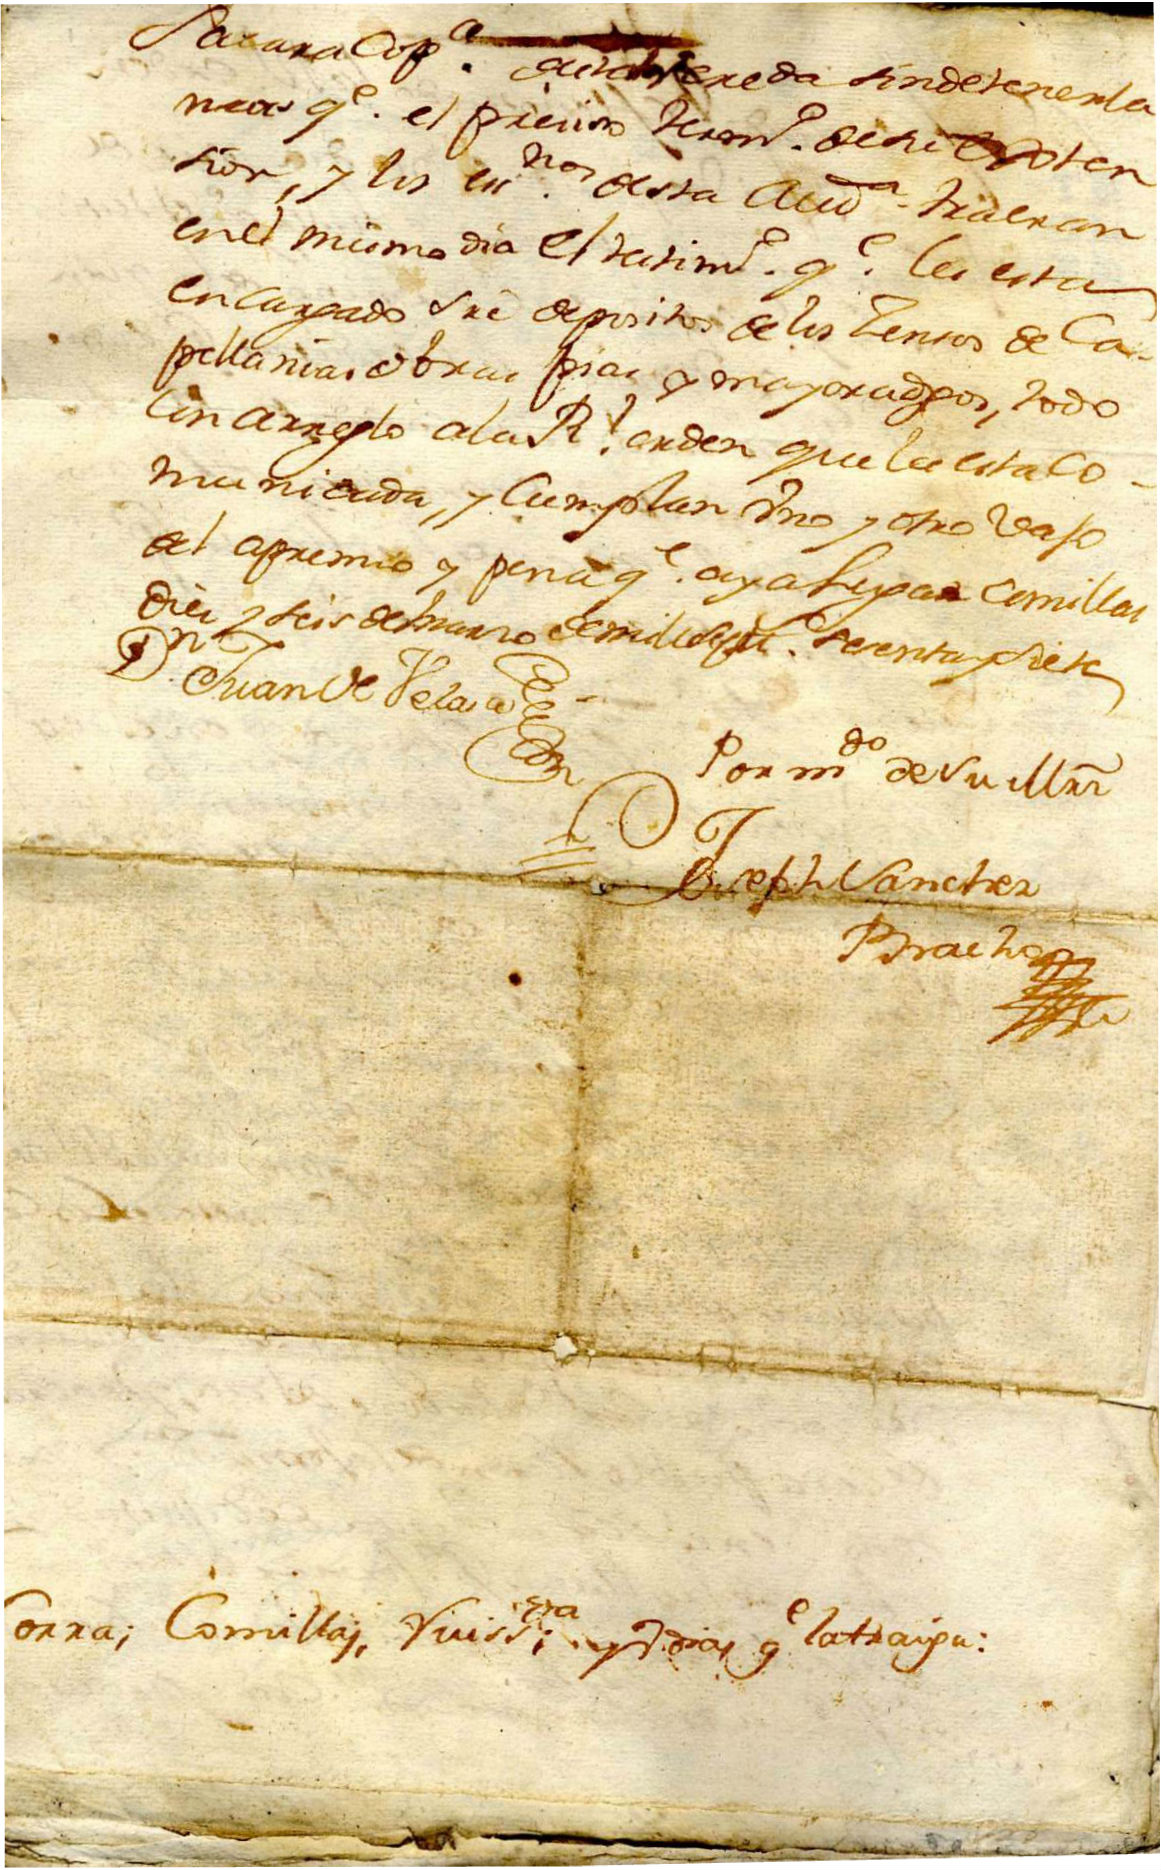 Sacara Copª. desta vereda sin detenerla
mas qᵉ. el preciso termº. de su
sion, y los esⁿᵒˢ. desta Audª. traeran
en el mismo dia el testimº. qᵉ. les esta
encargado sre depositos de los Zensos de Ca-
pellanias obras pias y mayorazgos, todo
con arreglo a la Rˡ. orden que les esta Co-
municada, y Cumplan Vno y otro vajo
el apremio y pena qᵉ. aya lugar Comillas
diez y seis de marzo de mill setᵗ. setenta y siete
Dⁿ Juan de Velasco
Por mᵈᵒ de Su Mrd
Joseph Sanchez
Bracho
Corra; Comillas, Ruisᵉʳᵃ y Demas qᵉ la traiga: